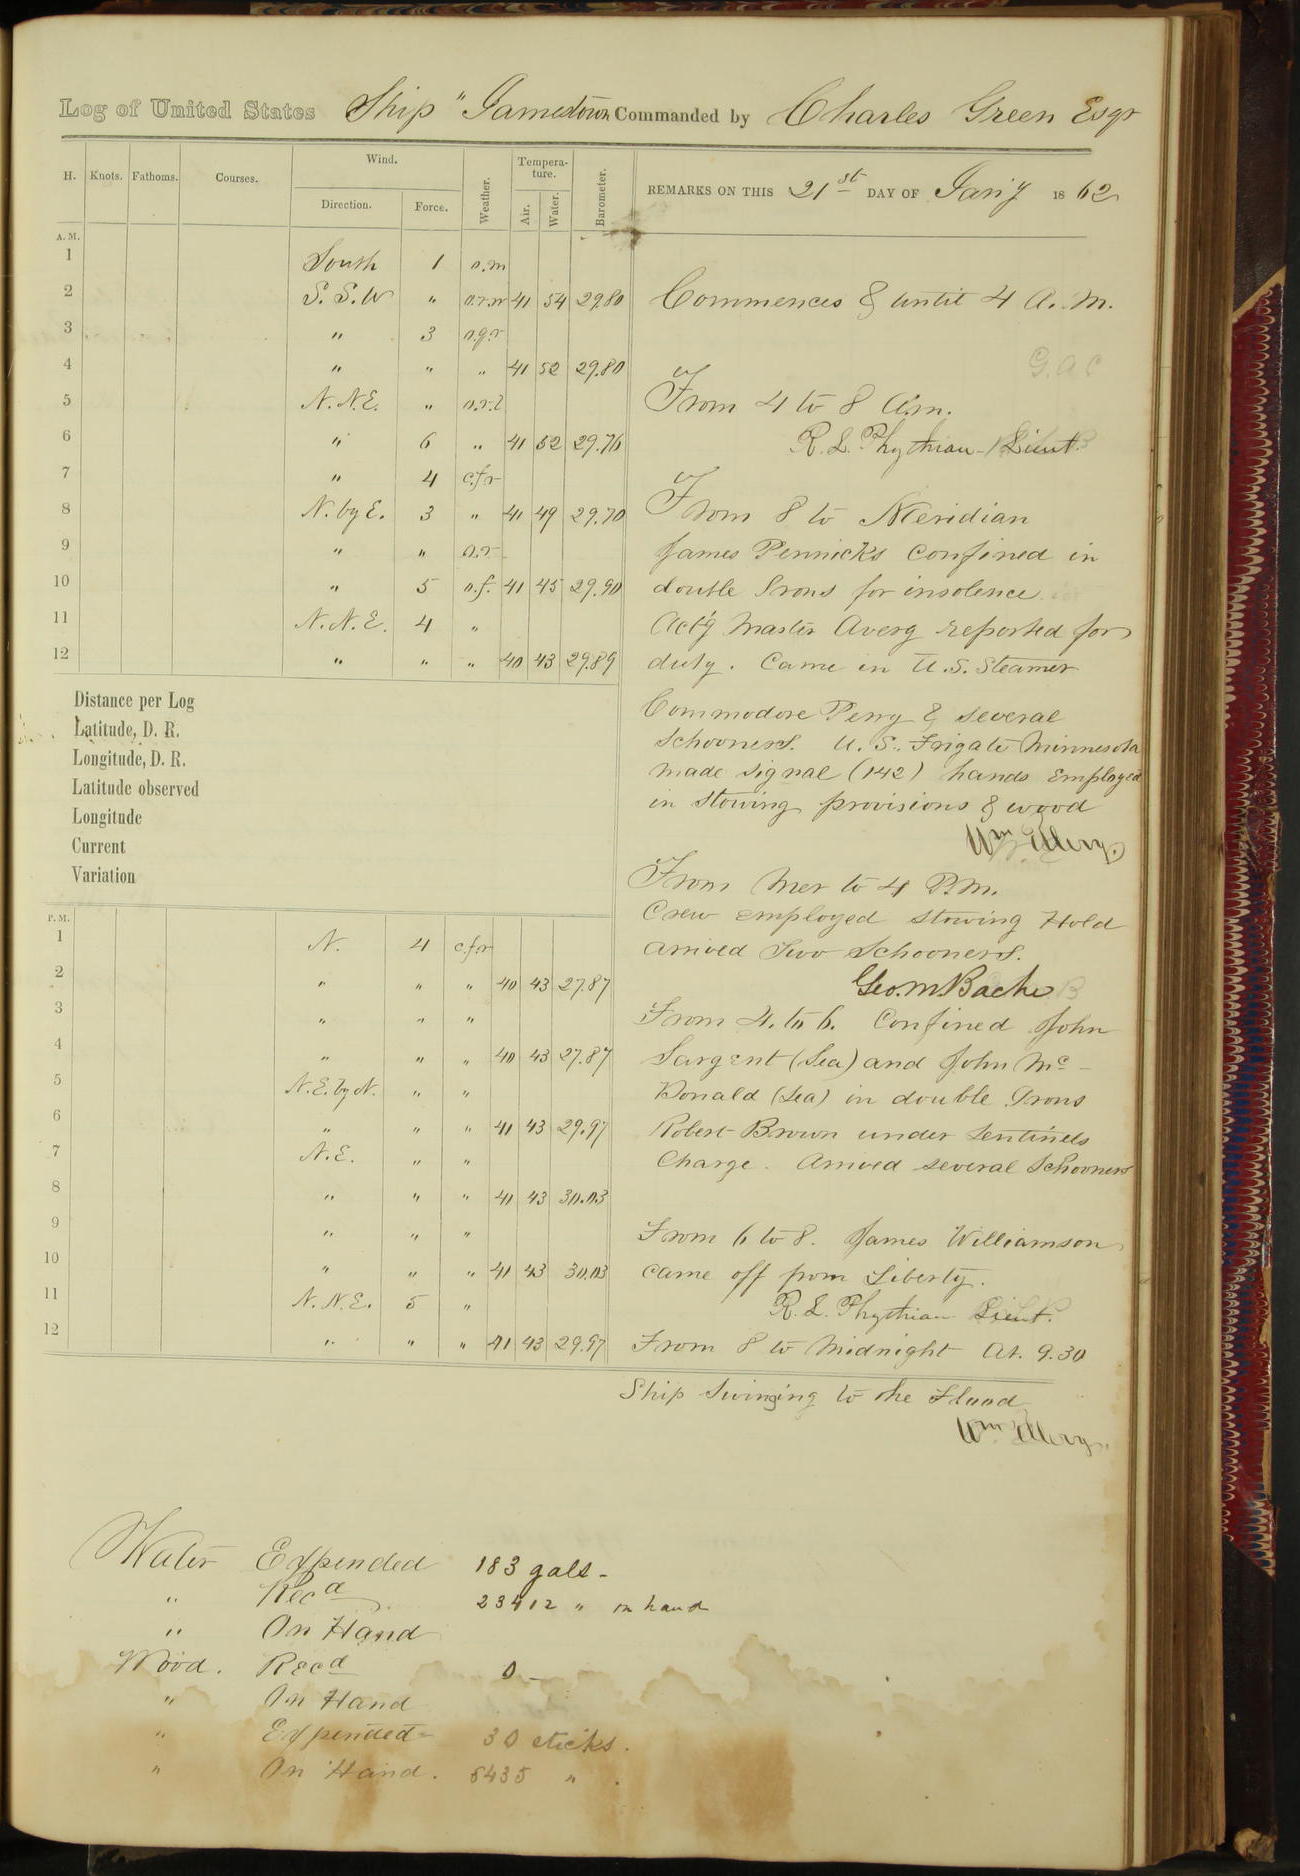 Log of United States Ship "Jamestown Commanded by Charles Green Esqr
H. Knots. Fathoms. Courses. Wind. Direction. Force. Weather. Tempera-ture. Air. Water. Barometer. REMARKS ON THIS 21st DAY OF Jan'y 1862
A. M.
1 South 1 o.m
2 S. S. W " o.r.m 41 54 29.80 Commences & until 4 A. M.
3 " 3 o.q.r
4 " " " 41 52 29.80 G.A.C
5 N. N. E. " From 4 to 8 A.m.
6 " 6 " 41 52 29.76 R. L. Phythian Lieut.
7 " 4 c.f.r
8 N. by E. 3 " 41 49 29.70 From 8 to Meridian
9 " " o.r James Pennicks confined in
10 " 5 o.f. 41 45 29.90 double Irons for insolence
11 N. N. E. 4 " Act'g Master Averg reported for
12 " " " 40 43 29.89 duty. Came in U. S. Steamer
Distance per Log Commodore Perry & several
Latitude, D. R. Schooners. U. S. Frigate Minnesota
Longitude, D. R. made signal (142) hands employed
Latitude observed in stowing provisions & wood
Longitude
Current
Variation From Mer to 4 P.M.
P. M. Crew employed stowing Hold
1 N. 4 c.f.r arrived Two Schooners.
2 " " " 40 43 27.87 Geo. M. Bache
3 " " " From 4. to 6. Confined John
4 " " " 40 43 27.87 Sargent (Sea) and John Mc-
5 N. E. by N. " " Donald (Sea) in double Irons
6 " " " 41 43 29.97 Robert Brown under Sentinels
7 N. E. " " Charge. Arrived several Schooners
8 " " " 41 43 30.03
9 " " " From 6 to 8. James Williamson
10 " " " 41 43 30.03 came off from Liberty.
11 N. N. E. 5 " R. L. Phythian Lieut.
12 " " " 41 43 29.97 From 8 to Midnight At. 9.30
Ship Swinging to the Flood
Water Expended 183 gals-
" Recd 23412 " on hand
" On Hand
Wood. Recd 0-
" On Hand
" Expended 30 sticks.
" On Hand. 6435 " .